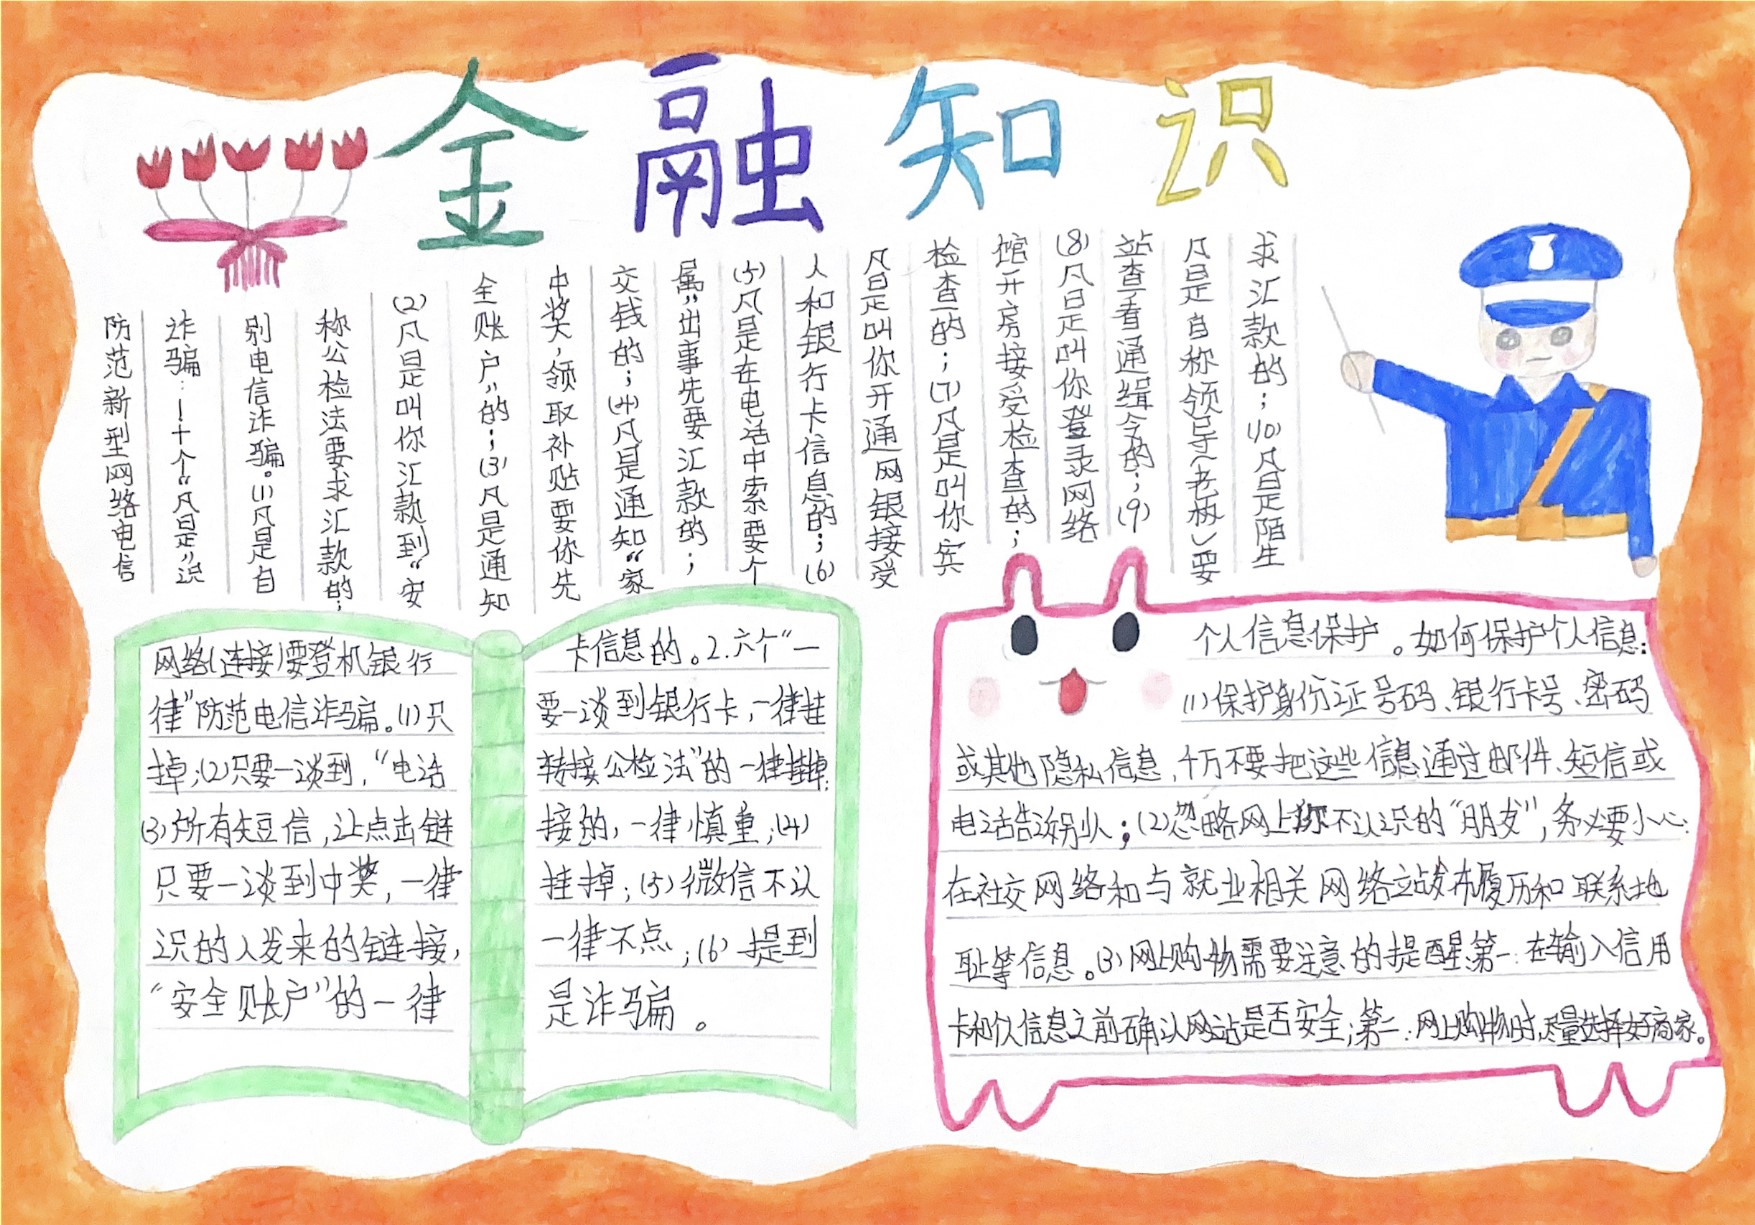 金融知识
防范新型网络电信
诈骗:1十个“凡是”识
别电信诈骗。(1)凡是自
称公检法要求汇款的;
(2)凡是叫你汇款到“安
全账户”的;(3)凡是通知
中奖,领取补贴要你先
交钱的;(4)凡是通知“家
属”出事先要汇款的;
(5)凡是在电话中索要个
人和银行卡信息的;(6)
凡是叫你开通网银接受
检查的;(7)凡是叫你宾
馆开房接受检查的;
(8)凡是叫你登录网络
站查看通缉令的;(9)
凡是自称领导(老板)要
求汇款的;(10)凡是陌生
网络(连接)要登机银行
卡信息的。2.六个“一
律”防范电信诈骗。(1)只
要一谈到银行卡,一律挂
掉;(2)只要一谈到,“电话
转接公检法”的一律挂掉;
(3)所有短信,让点击链
接的,一律慎重;(4)
只要一谈到中奖,一律
挂掉;(5)微信不认
识的人发来的链接,
一律不点;(6)提到
“安全账户”的一律
是诈骗。
个人信息保护。如何保护个人信息:
(1)保护身份证号码、银行卡号、密码
或其他隐私信息,千万不要把这些信息通过邮件、短信或
电话告诉别人;(2)忽略网上你不认识的“朋友”,务必要小心:
在社交网络和与就业相关网络立战发布履历和联系地
址等信息。(3)网上购物需要注意的提醒:第一:在输入信用
卡和个人信息之前确认网站是否安全;第二:网上购物时,尽量选择好商家。